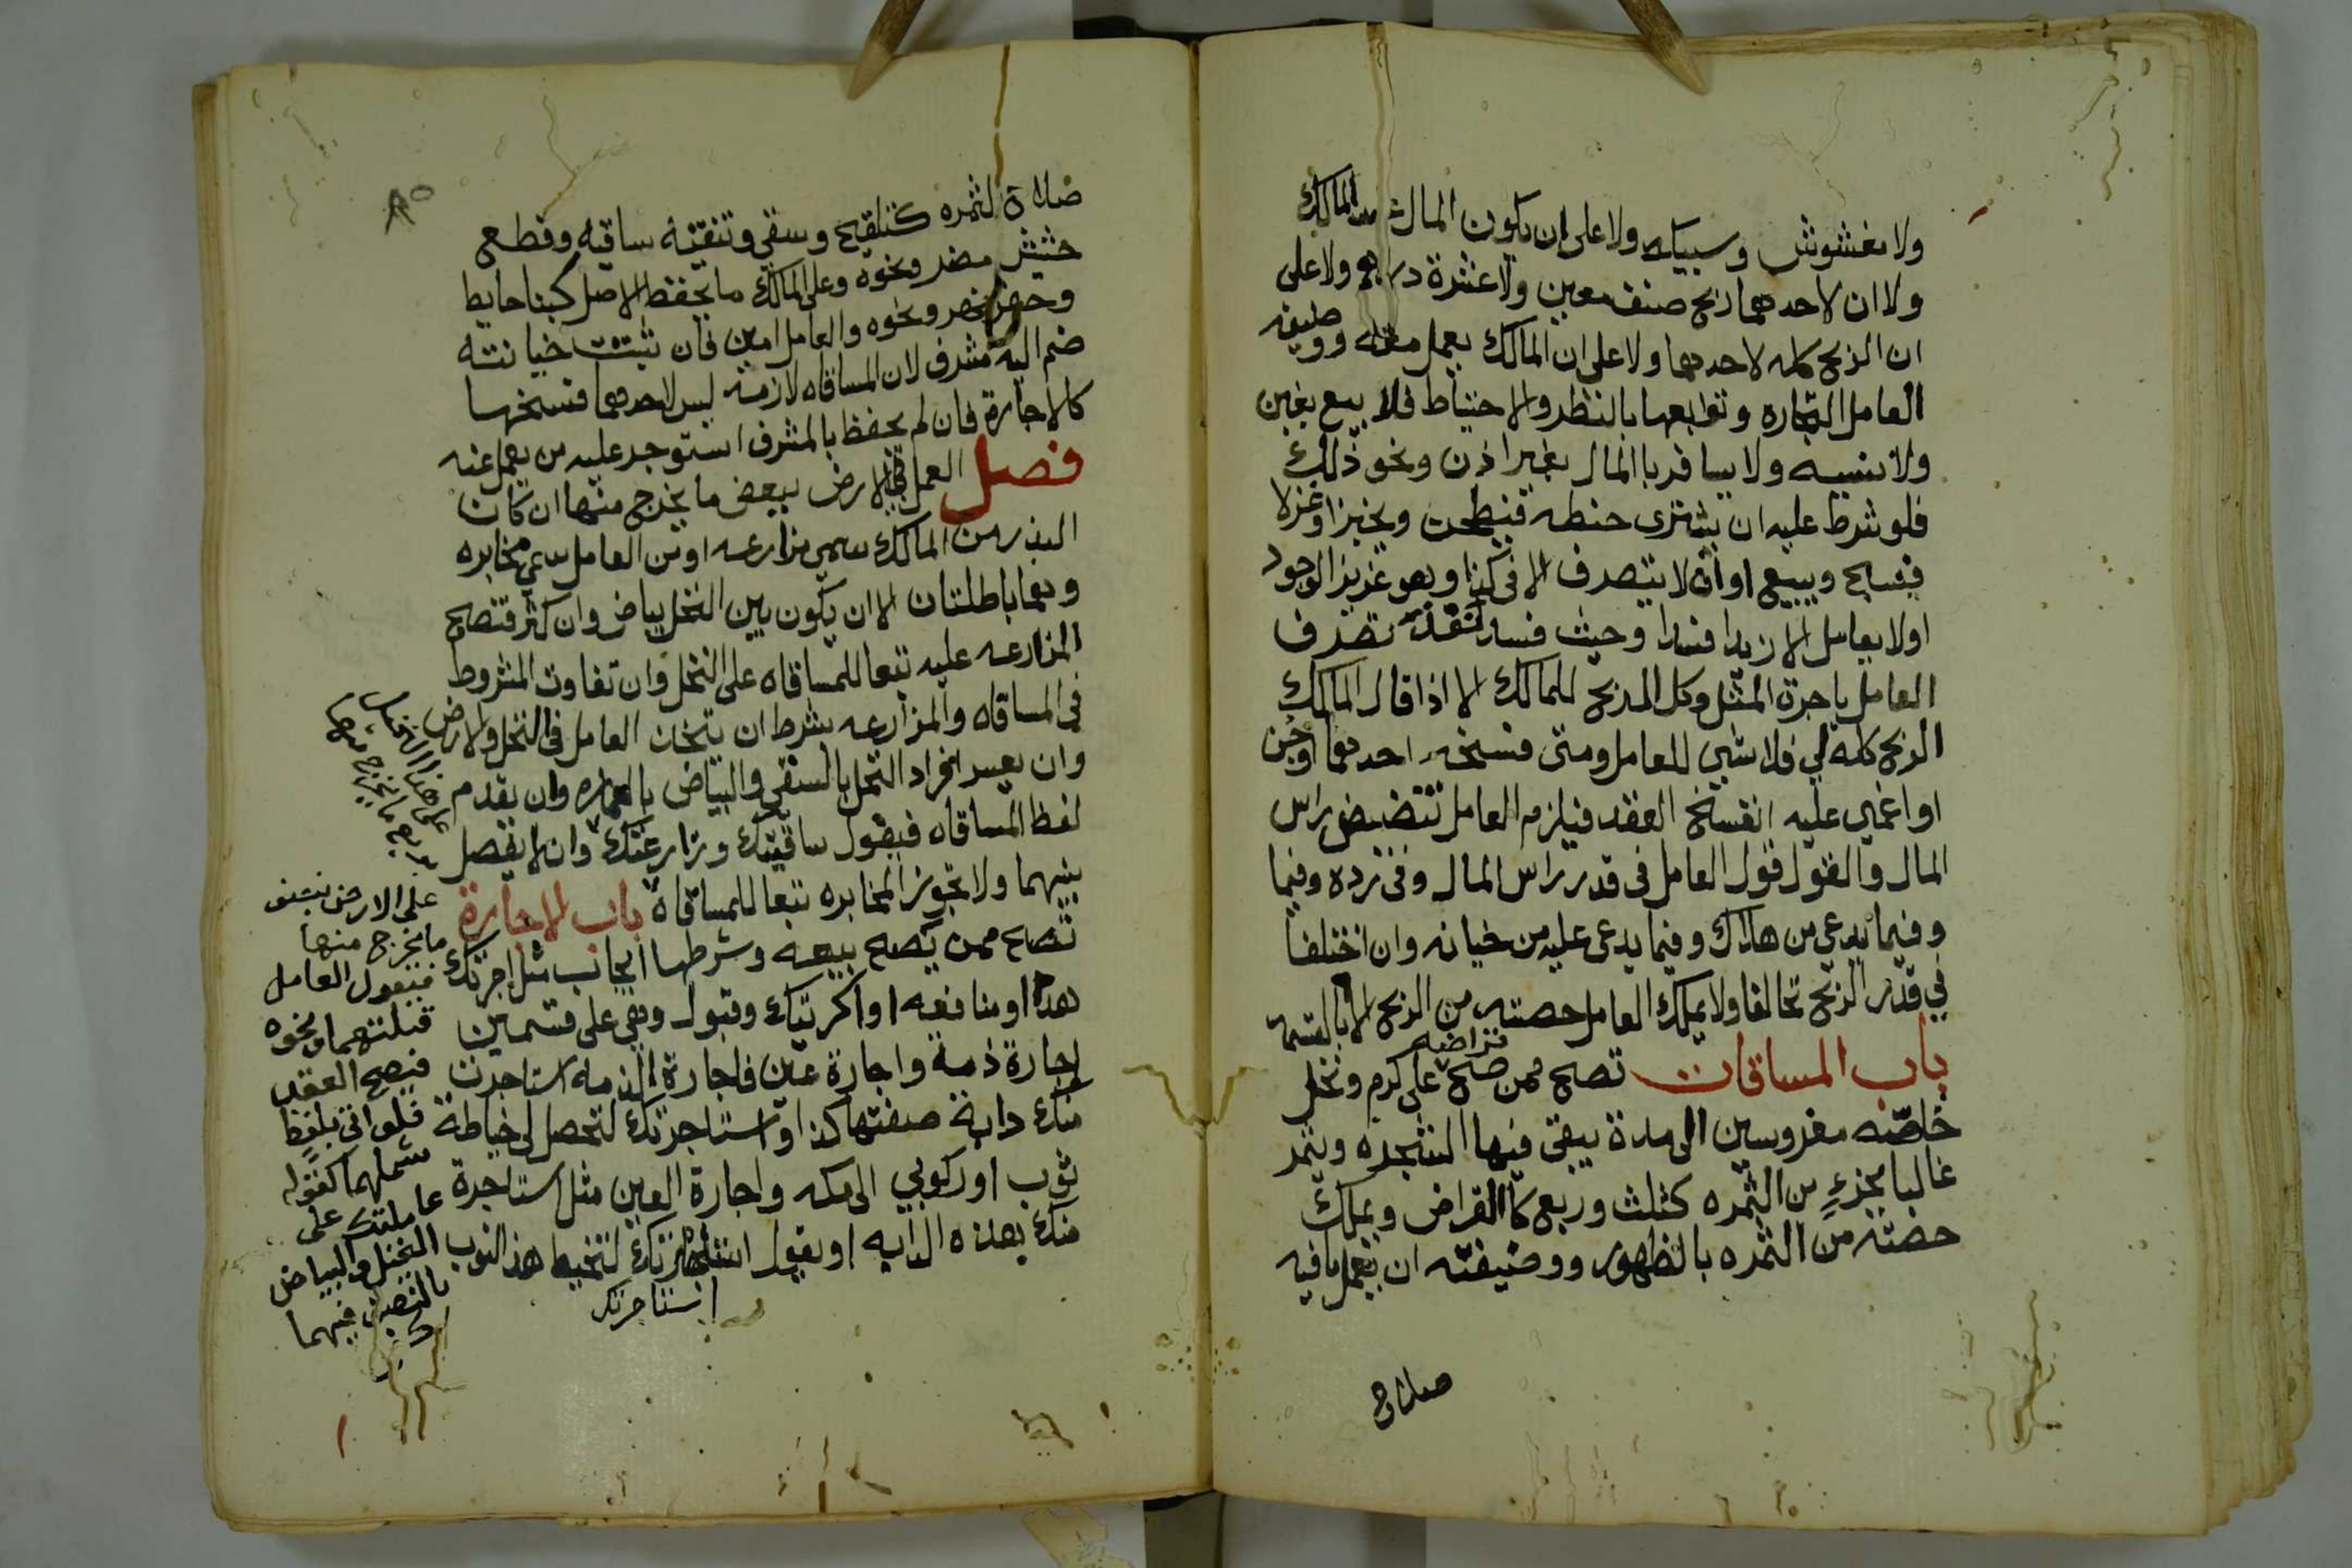 ولا مغشوش وسبيكه ولا على ان يكون المال عند المالك
ولا ان لاحدهما ربح صنف معين ولا عشرة دراهم ولا على
ان الربح كله لاحدهما ولا على ان المالك يعمل معه ووظيفه
العامل التجاره وتوابعها بالنظر والاحتياط فلا يبيع بغبن
ولا نسيه ولا يسافر باالمال بغير اذن ونحو ذلك
فلو شرط عليه ان يشتري حنطه فيطحن ويخبز او غزلا
فينسج ويبيع او ان لا يتصرف الا في كذا وهو عزيز الوجود
اولا يعامل الا زيدا فسدا وحيث فسد لنفذ تصرف
العامل باجرة المثل وكل الربح للمالك الا اذا قال المالك
الربح كله لي فلا شي للعامل ومتى فسخه احدهما او جن
او اغمي عليه انفسخ العقد فيلزم العامل تنضيض راس
المال والقول قول العامل في قدر راس المال وفى رده وفيما
وفيما يدعي من هلاك وفيما يدعى عليه من خيانه وان اختلفا
في قدر الربح تحالفا ولا يملك العامل حصته من الربح الا بالقسمة
باب المساقات تصح ممن صح قراضه على كرم ونخل
خاصّه مغروسين الى مدة يبقى فيها الشجره ويثمر
غالبا بجزءٍ من الثمره كثلث وربع كاالقراض ويملك
حصته من الثمره بالظهور ووضيفته ان يعمل ما فيه
صلاح
٨٥
صلاح الثمره كتلقيح وسقي وتنقيه ساقيه وقطع
حشيش مضر ونحوه وعلى المالك ما يحفظ الاصل كبنا حايط
وحفر نهر ونحوه والعامل امين فان ثبتت خيانته
ضم اليه مشرف لان المساقاه لازمه ليس لاحدهما فسخها
كالاجارة فان لم يحفظ بالمشرف استوجر عليه من يعمل عنه
فصل العمل في الارض ببعض ما يخرج منها ان كان
البذر من المالك سمي مزارعه او من العامل سمي مخابره
وهما باطلتان الا ان يكون بين النخل بياض وان كثر فتصح
المزارعه عليه تبعا للمساقاه على النخل وان تفاوت المشروط
في المساقاه والمزارعه بشرط ان يتحد العامل في النخل والارض
وان يعسر افراد النخل بالسقي والبياض بالعماره وان يقدم
لفظ المساقاه فيقول ساقيتك وزارعتك وان لا يفصل
بينهما ولا تجوز المخابره تبعا للمساقاة باب الاجارة
تصح ممن يصح بيعه وشرطها ايجاب مثل اجرتك
هذا او منافعه او اكريتك وقبول وهي على قسمين
اجارة ذمة واجارة عين فاجارة الذمه استاجرت
منك دابة صفتها كذا او استاجرتك لتحصل لي خياطة
ثوب او ركوبي الى مكه واجارة العين مثل استاجرة
منك هذه الدابه او يقول استاجرتك لتخيط هذا الثوب
استاجرتك
على هذا النخل
ما يخرج منها
على الارض بنصف
ما يخرج منها
فيقول العامل
قبلتهما ونحوه
فيصح العقد
فلو اتى بلفظ
شملهما كقوله
عاملتك على
النخل والبياض
بالنصف فيهما